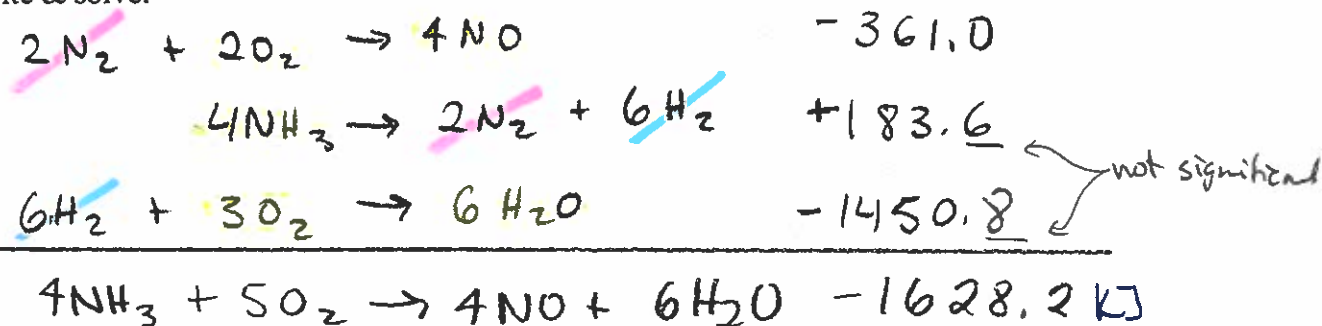 to solve.
2N₂ + 2O₂ → 4NO -361.0
4NH₃ → 2N₂ + 6H₂ +183.6
not significant
6H₂ + 3O₂ → 6H₂O -1450.8
4NH₃ + 5O₂ → 4NO + 6H₂O -1628.2 KJ